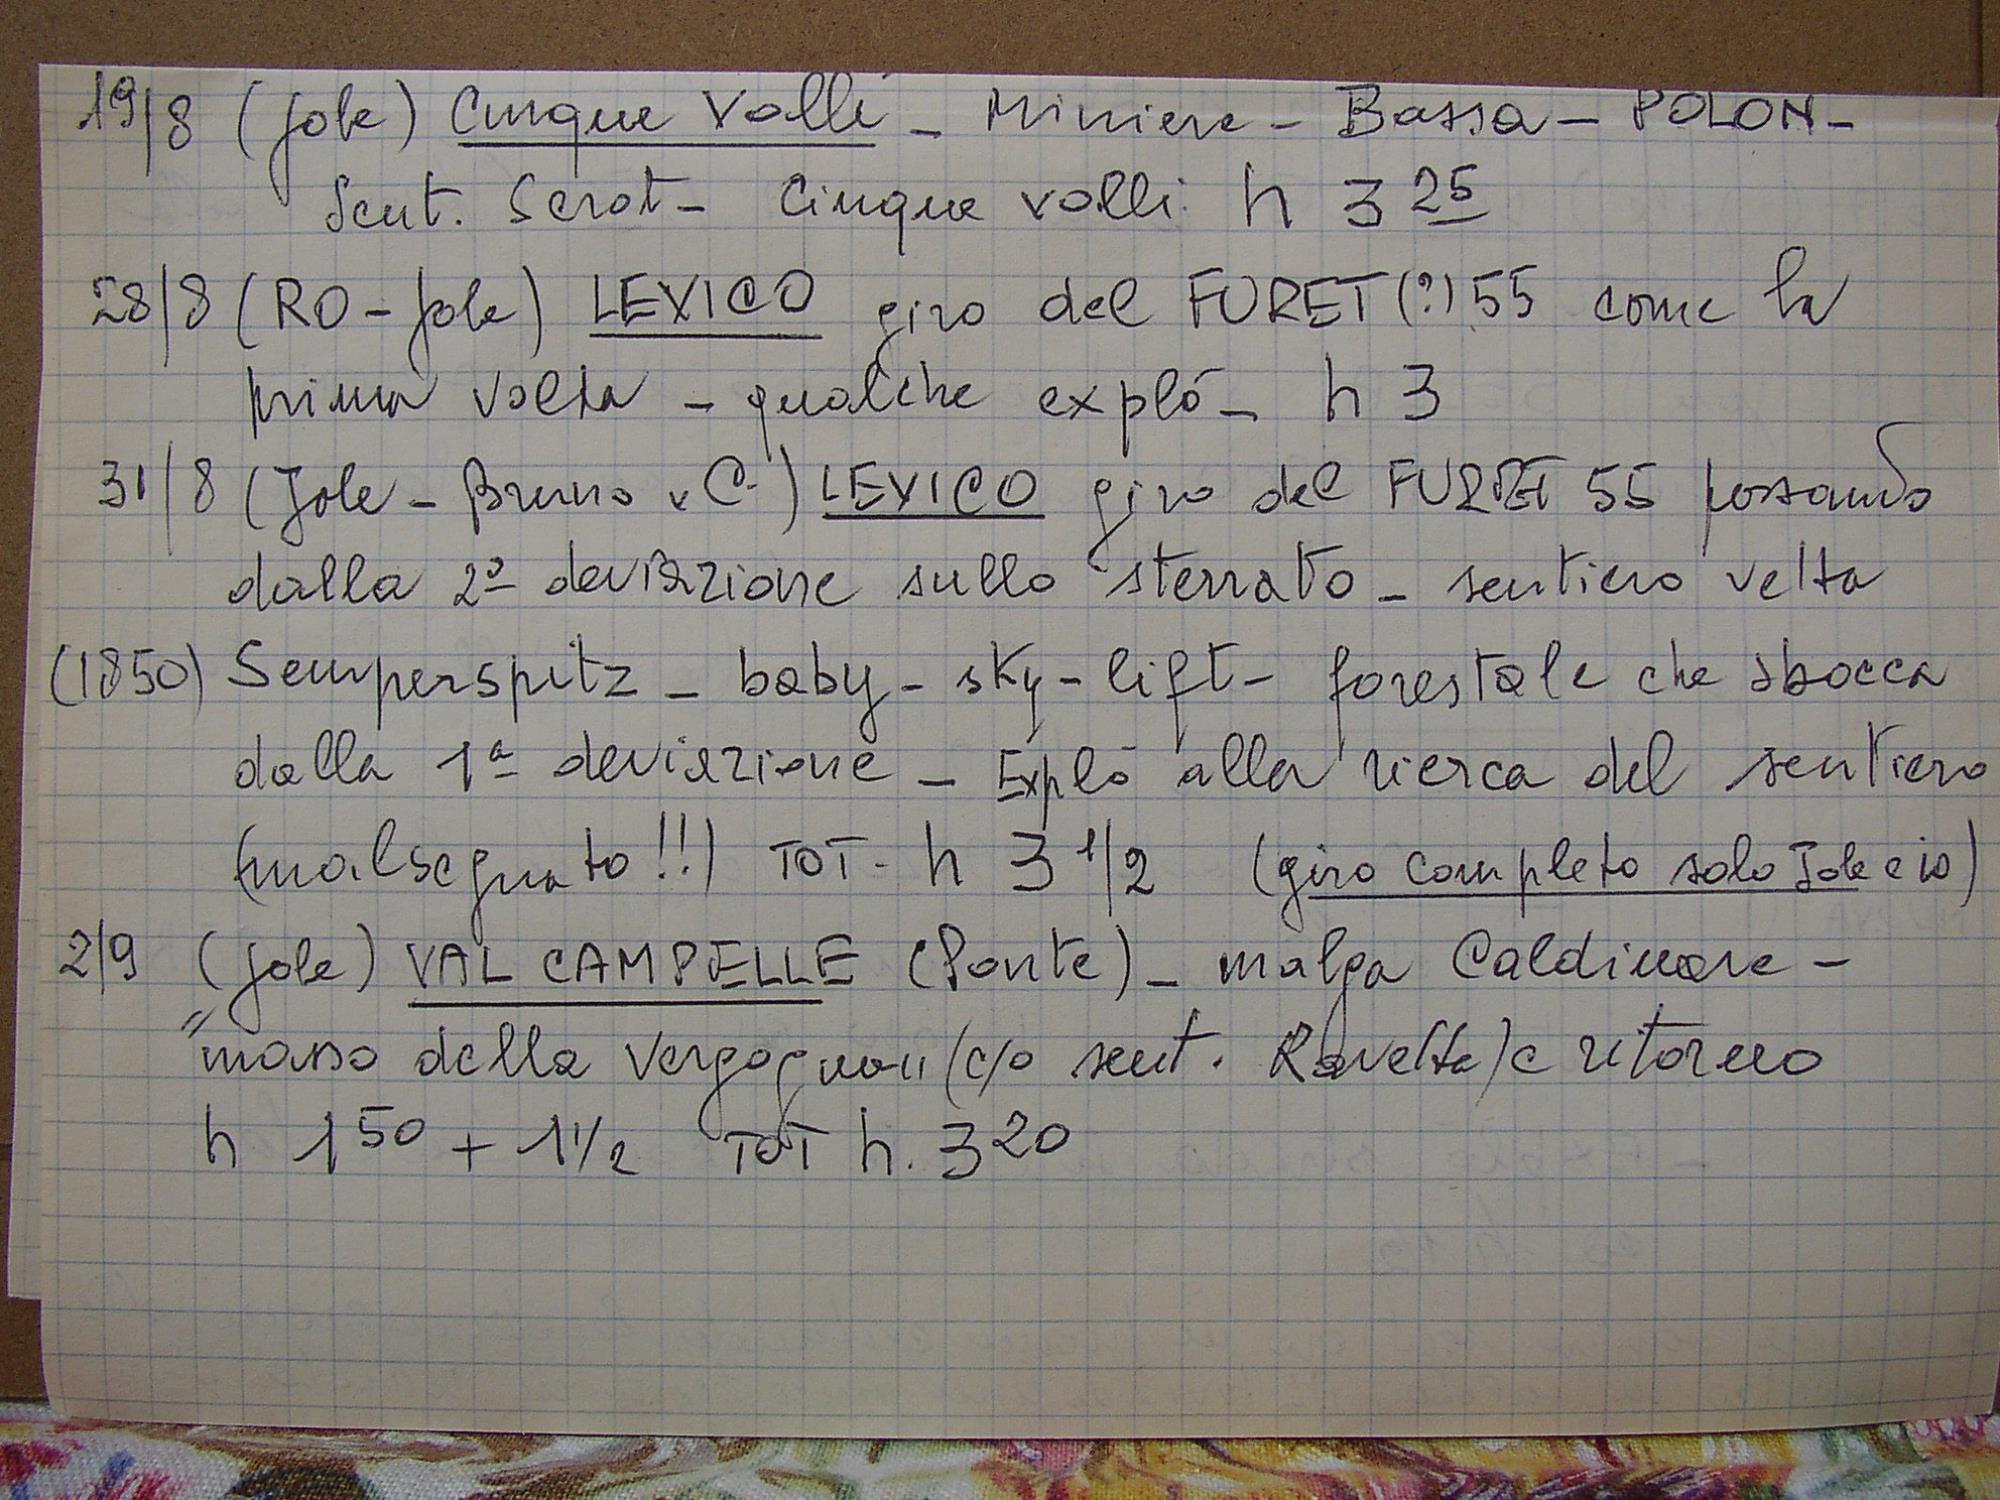 19/8 (Jole) Cinque Valli - Miniere - Bassa - POLON -
Sent. Serot - Cinque valli h 3 25
28/8 (RO - Jole) LEXICO giro del FURET (?) 55 come la
prima volta - qualche expló - h 3
31/8 (Jole - Bruno v C.) LEXICO giro del FURET 55 passando
dalla 2ª deviazione sullo sterrato - sentiero vetta
(1850) Semperspitz - baby - sky - lift - forestale che sbocca
dalla 1ª deviazione - Expló alla ricerca del sentiero
(malsegnato!!) TOT. h 3 1/2 (giro completo solo Jole e io)
2/9 (Jole) VAL CAMPELLE (Ponte) - malga Caldinave -
"maso della vergogna" (c/o sent. Ravetta) e ritorno
h 1 50 + 1 1/2 TOT h. 3 20